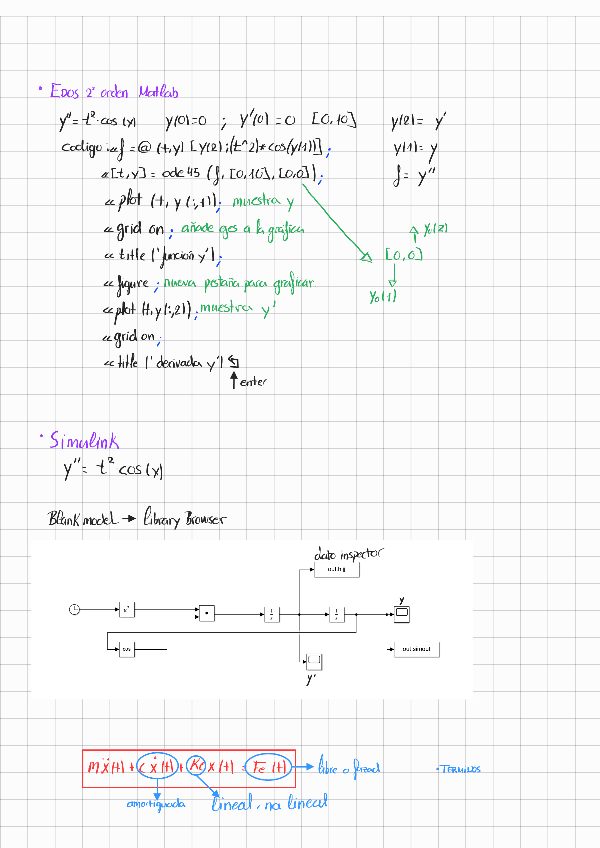 • EDOS 2º orden Matlab
y'' = t² · cos (x)   y(0)=0 ; y'(0) = 0   [0,10]   y(2) = y'
codigo : « f = @ (t,y) [y(2) ; (t^2)*cos(y(1))] ;   y(1) = y
« [t, y] = ode45 (f, [0,10], [0,0]) ;   f = y''
« plot (t, y (:,1)); muestra y
« grid on ; añade ges a la grafica   y₀(2)
« title ('función y') ;   [0,0]
« figure ; nueva pestaña para graficar   y₀(1)
« plot (t, y(:,2)) ; muestra y'
« grid on ;
« title (' derivada y')
enter
• Simulink
y'' = t² cos (x)
Blank model → Library Browser
dato inspector
y
cos
out.simout
y'
mẍ(t) + cẋ(t) + Kc x(t) = Fe (t) → libre o forzad   • TERMINOS
amortiguada   lineal, na lineal